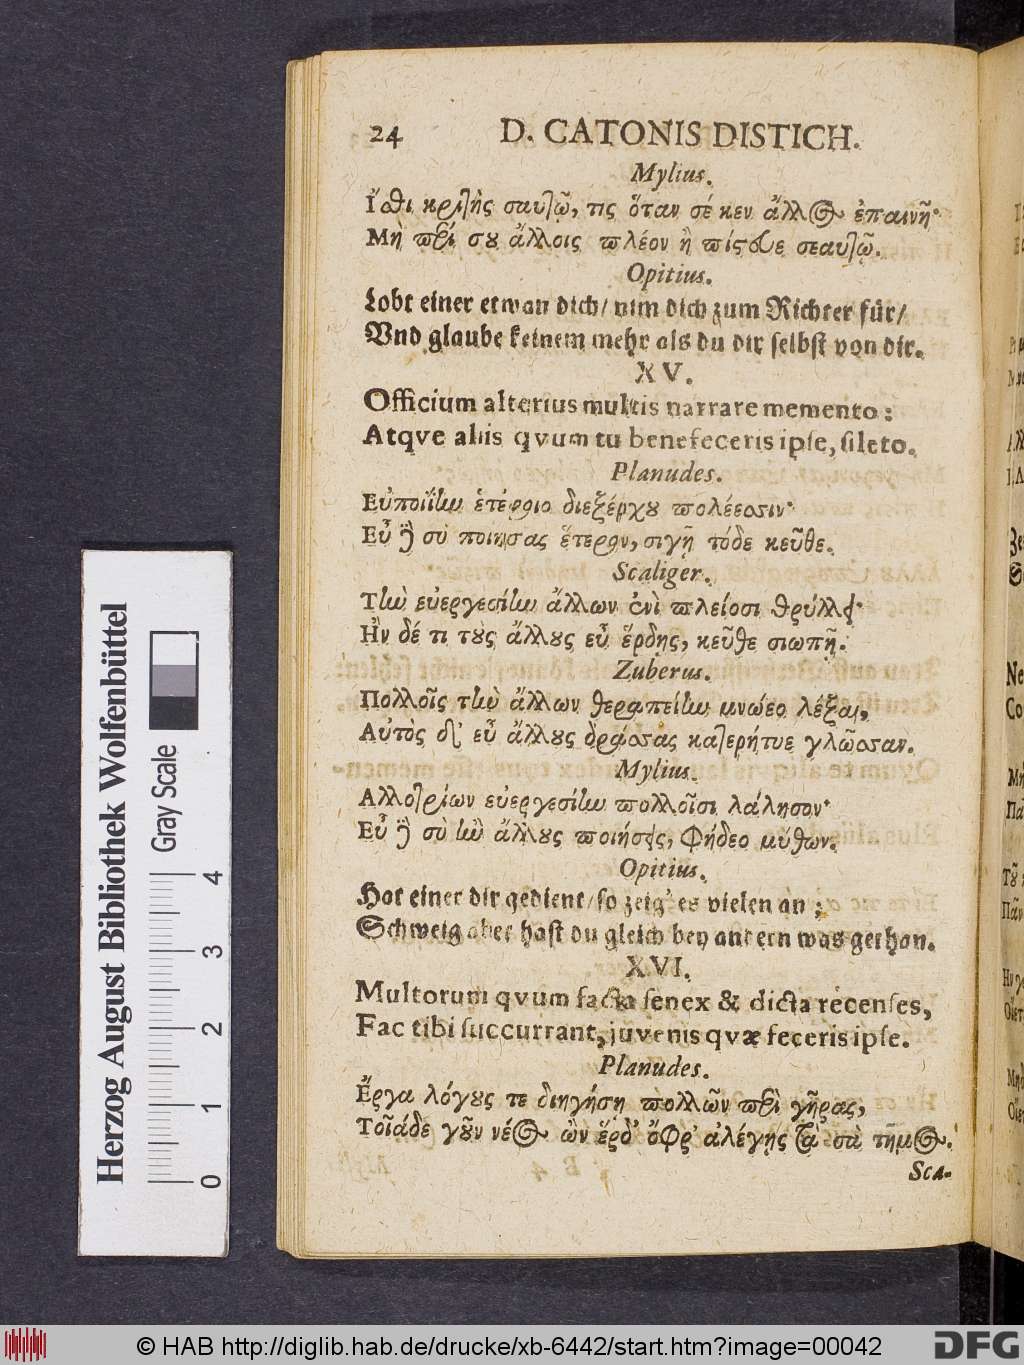 24 D. CATONIS DISTICH.
Mylius.
Ἴσθι κριτὴς σαυτῷ, τις ὅταν σέ κεν ἄλλος ἐπαινῇ·
Μὴ περί σου ἄλλοις πλέον ἢ πίστευε σεαυτῷ.
Opitius.
Lobt einer etwan dich/ nim dich zum Richter für/
Vnd glaube keinem mehr als du dir selbst von dir.
XV.
Officium alterius multis narrare memento:
Atqve aliis qvum tu benefeceris ipse, sileto.
Planudes.
Εὐποιΐην ἑτέροιο διεξέρχου πολέεσσιν·
Εὖ δὲ σὺ ποιήσας ἕτερον, σιγῇ τόδε κεῦθε.
Scaliger.
Τὴν εὐεργεσίην ἄλλων ἐνὶ πλείοσι θρύλλει·
Ἢν δέ τι τοὺς ἄλλους εὖ ἔρδῃς, κεῦθε σιωπῇ.
Zuberus.
Πολλοῖς τὴν ἄλλων θεραπείην μνώεο λέξαι,
Αὐτὸς δ' εὖ ἄλλους δράσσας κατερήτυε γλῶσσαν.
Mylius.
Αλλοτρίων εὐεργεσίην πολλοῖσι λάλησον·
Εὖ δὲ σὺ ἢν ἄλλους ποιήσεις, φήδεο μύθων.
Opitius.
Hat einer dir gedient/ so zeig' es vielen an;
Schweig aber hast du gleich bey andern was gethan.
XVI.
Multorum qvum facta senex & dicta récenses,
Fac tibi succurrant, juvenis qvæ feceris ipse.
Planudes.
Ἔργα λόγους τε διηγήσῃ πολλῶν περὶ γῆρας,
Τοῖάδε γοῦν νέος ὢν ἔρδ' ὄφρ' ἀλέγῃς τὰ σὰ τῆμος.
Sca-
Herzog August Bibliothek Wolfenbüttel
Gray Scale
0 1 2 3 4
© HAB http://diglib.hab.de/drucke/xb-6442/start.htm?image=00042
DFG